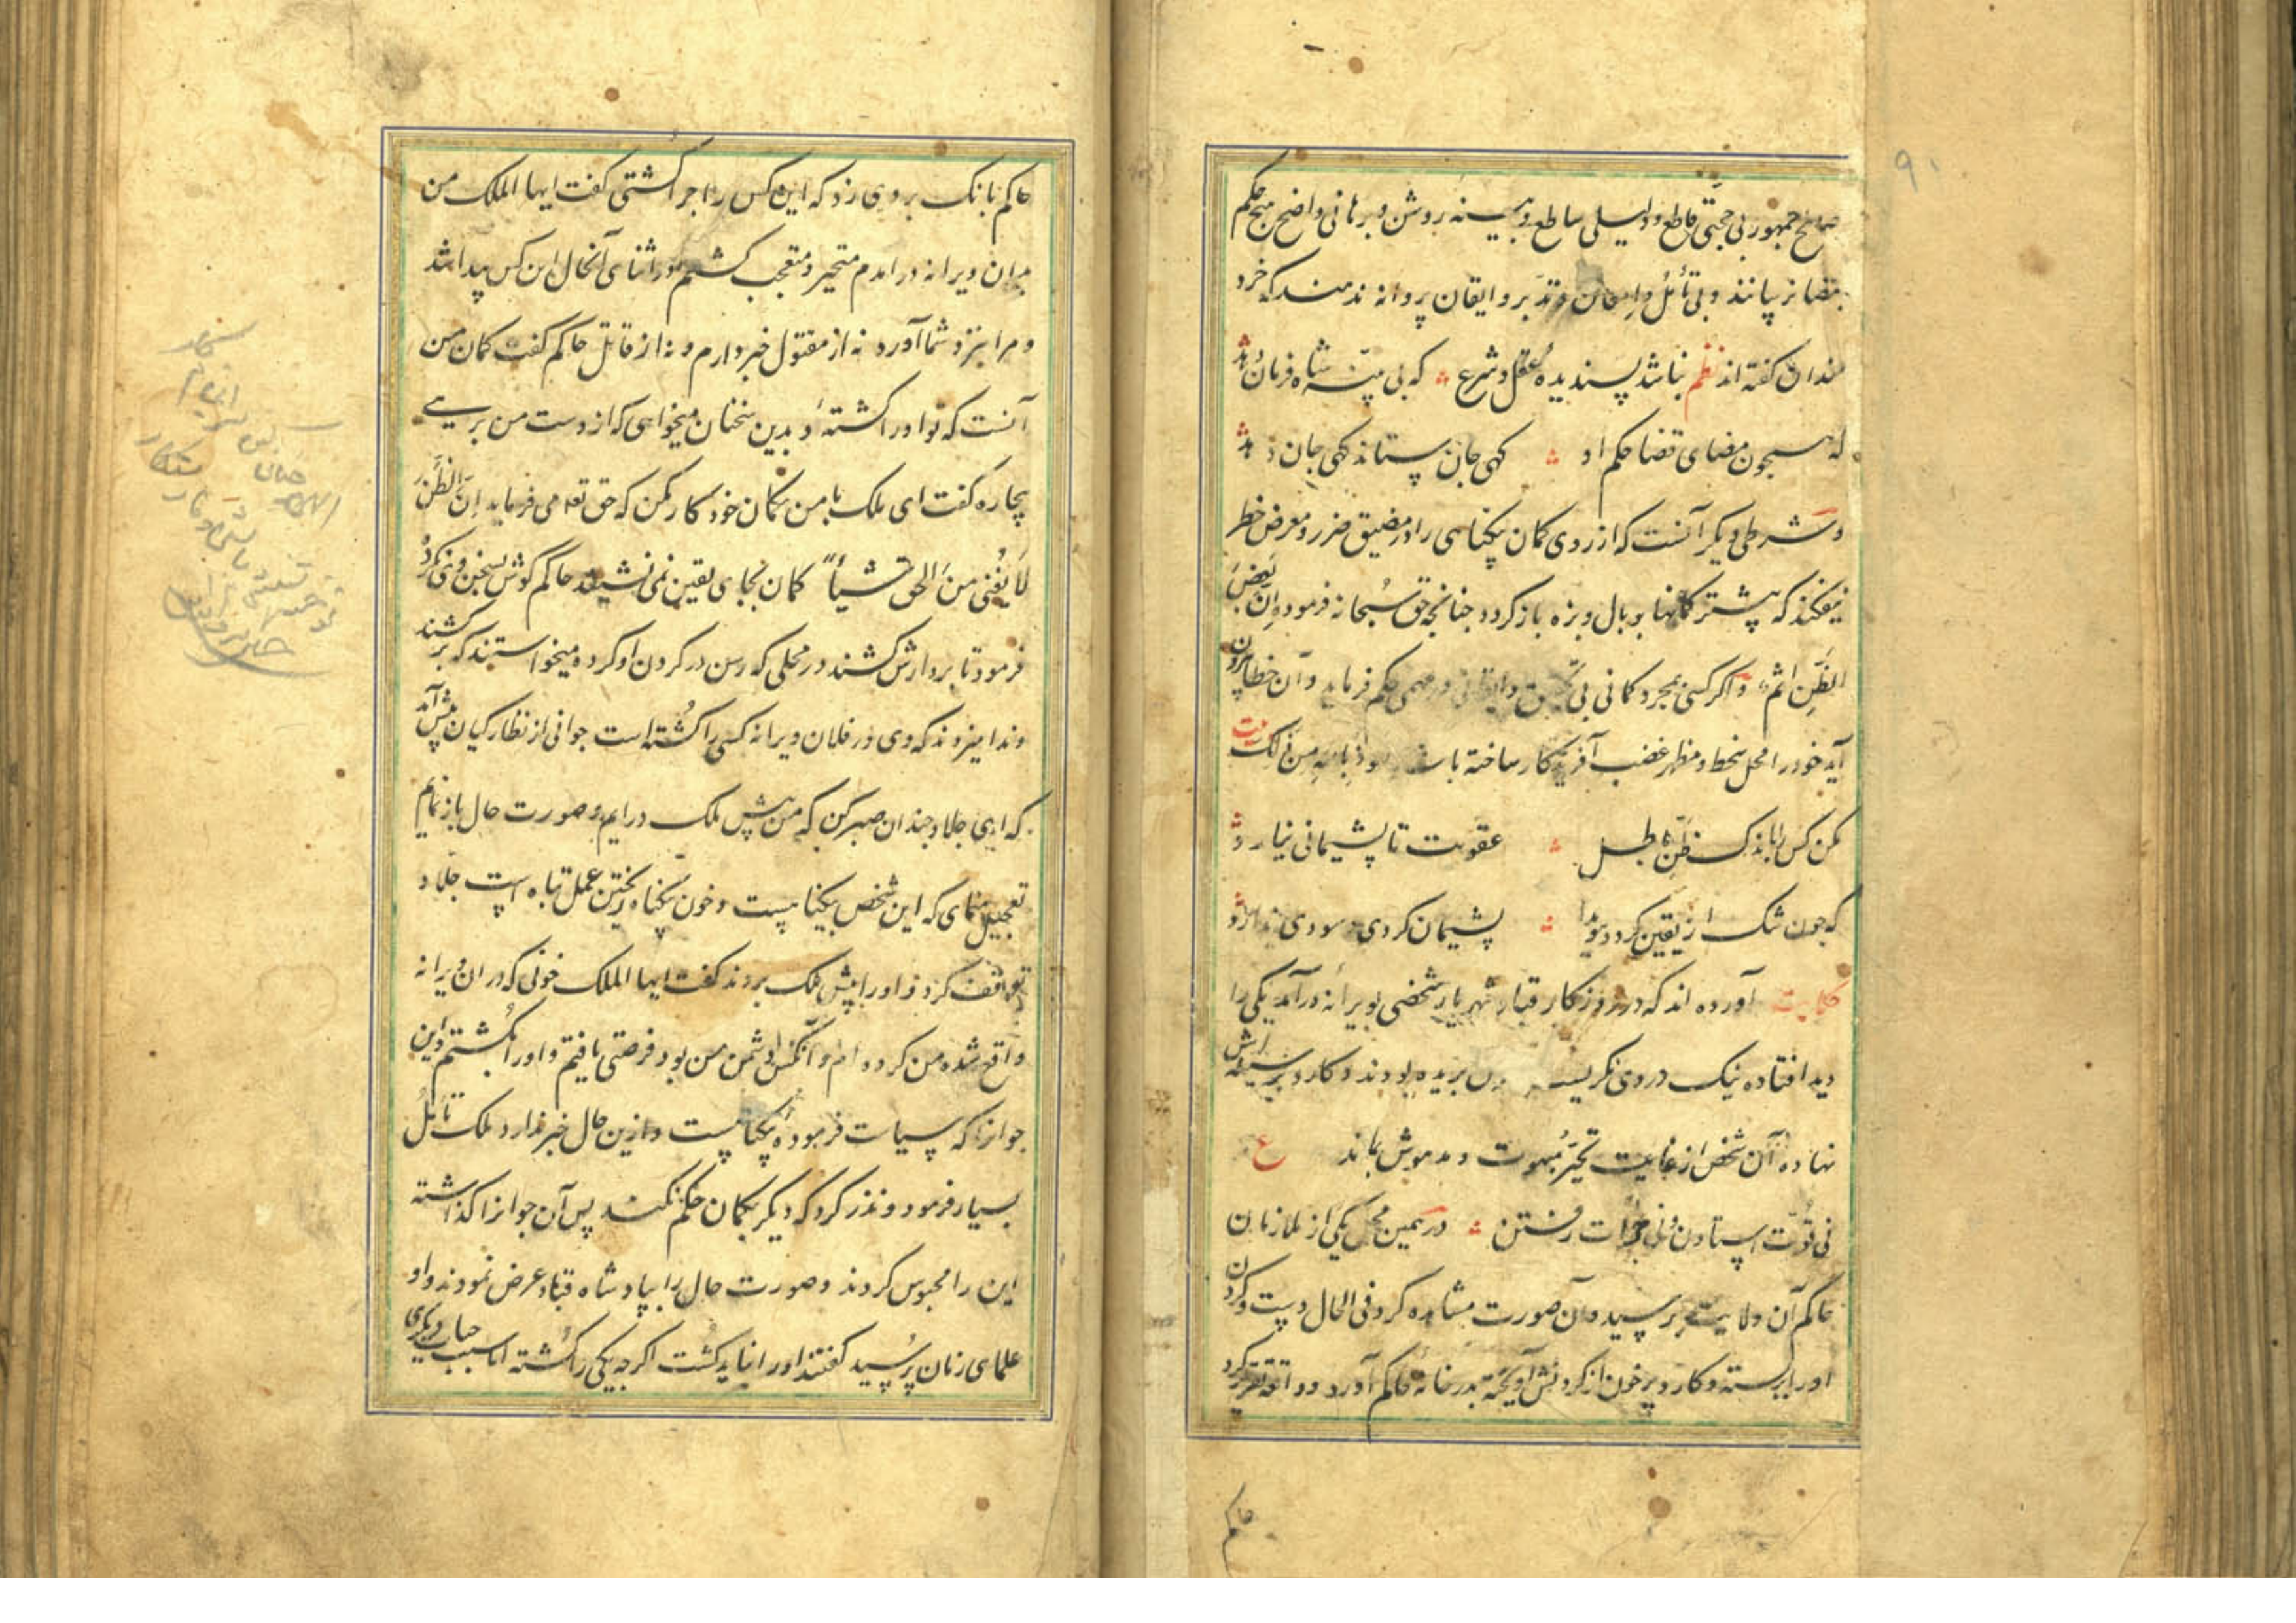 ۹۰
صالح جمهور بی حجتی قاطع و دلیلی ساطع و بینه روشن و برهانی واضح هیچ حکم
بمضا نرسانند و بی تأمل و امعان و تدبر و ایقان پروانه ندهند که خرد
مندان کفته اند نظم نباشد پسندیده عقل و شرع که بی بینه شاه فرمان دهد
که همچون مضای قضا حکم او کهی جان ستاند کهی جان دهد
و شرطی دیکر آنست که از روی کمان بیکناهی را در مضیق ضرر و معرض خطر
نیفکند که بیشتر کمانها بوبال و بزه باز کردد جنانجه حق سبحانه فرموده ان بعض
الظن اثم و اکر کسی بمجرد کمانی بی تحقیق و ایقانی در مهمی حکم فرماید و آن خطا بیرون
آید خود را محل سخط و مظهر غضب آفریدکار ساخته باشد نعوذ بالله من ذلک بیت
مکن کس را باندک ظن باطل عقوبت تا پشیمانی نیارد
که جون شک از یقین کردد هویدا پشیمان کردی و سودی ندارد
حکایت آورده اند که در روزکار قباد شهریار شخصی بویرانه درآمد یکی را
دید افتاده نیک در وی نکریست بریده بودند و کارد بر سینه اش
نهاده آن شخص از غایت تحیر مبهوت و مدهوش بماند ع
نی قوت استادن و نی جرأت رفتن در همین محل یکی از ملازمان
حاکم آن ولایت برسید و آن صورت مشاهده کرد فی الحال دست و کردن
او را بربسته و کارد پر خون از کردنش آویخته بدر خانه حاکم آورد و واقعه تقریر کرد
حاکم
حاکم بانک بر وی زد که این کس را جرا کشتی کفت ایها الملک من
بدان ویرانه درآمدم متحیر و متعجب کشتم در اثنای آنحال این کس پیدا شد
و مرا بنزد شما آورد نه از مقتول خبر دارم و نه از قاتل حاکم کفت کمان من
آنست که تو او را کشتهٔ و بدین سخنان میخواهی که از دست من برهی
بیجاره کفت ای ملک با من بکمان خود کار مکن که حق تعه می فرماید ان الظن
لا یغنی من الحق شیئا کمان بجای یقین نمی نشیند حاکم کوش بسخن وی نکرد
فرمود تا بردارش کشند در محلی که رسن در کردن او کرده میخواستند که بر کشند
و ندا میزدند که وی در فلان ویرانه کسی را کشته است جوانی از نظارکیان پیش آمد
که ای جلاد جندان صبر کن که من پیش ملک درایم و صورت حال باز نمایم
تعجیل منمای که این شخص بیکناهست و خون بیکناه ریختن عمل تباه است جلاد
توقف کرد و او را پیش ملک بردند کفت ایها الملک خونی که در ان ویرانه
واقع شده من کرده ام و آنکس دشمن من بود فرصتی یافتم و او را بکشتم و این
جوانرا که سیاست فرموده بیکناهست و ازین حال خبر ندارد ملک تأمل
بسیار فرمود و نذر کرد که دیکر بکمان حکم نکند پس آن جوانرا کذاشته
این را محبوس کردند و صورت حال را بپادشاه قباد عرض نمودند و او
علمای زمان پرسید کفتند او را نباید کشت اکر جه یکی را کشته اما سبب حیات دیکری